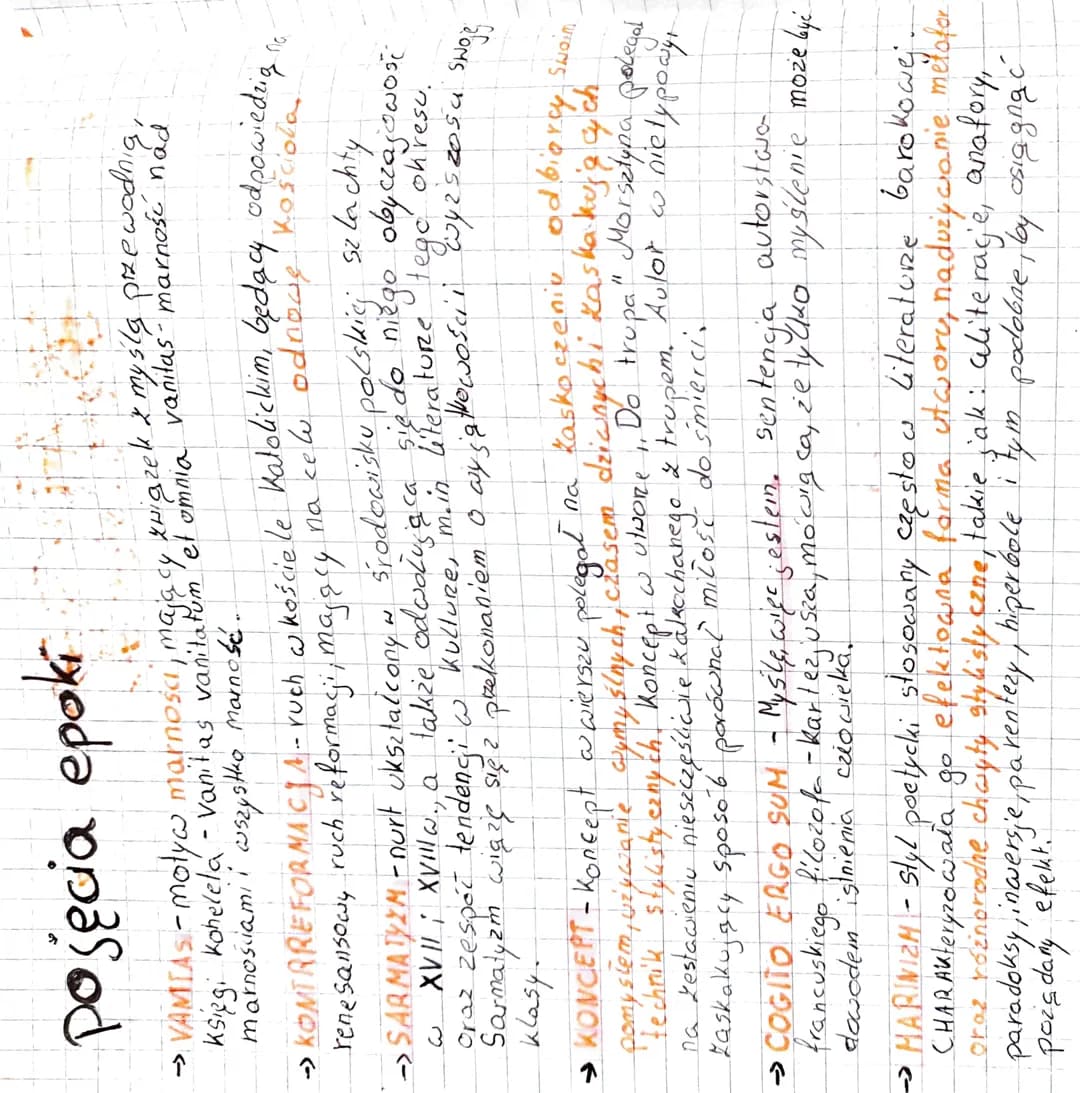 pojęcia epoki
→ VANITAS - motyw marności, mający związek z myślą przewodnią,
księgi koheleta - vanitas vanitatum et omnia vanitas - marność nad
marnościami i wszystko marność.
→ KONTRREFORMACJA - ruch w kościele katolickim, będący odpowiedzią na
renesansowy ruch reformacji, mający na celu odnowę kościoła.
→ SARMATYZM - nurt ukształcony w środowisku polskiej szlachty
w XVII i XVIII w., a także odwołująca się do niego obyczajowość
oraz zespół tendencji w kulturze, m.in literaturze tego okresu.
Sarmatyzm wiązę się z przekonaniem o wyjątkowości i wyższości swojej
klasy.
→ KONCEPT - koncept w wierszu polegał na zaskoczeniu odbiorcy swoim
pomysłem, używanie wymyślnych, czasem dziwnych i zaskakujących
technik stylistycznych. Koncept w utworze „Do trupa" Morsztyna polegał
na zestawieniu nieszczęśliwie zakochanego z trupem. Autor w nietypowy,
zaskakujący sposób porównał miłość do śmierci.
→ COGITO ERGO SUM - Myślę, więc jestem. sentencja autorstwa
francuskiego filozofa - kartezjusza, mówiąca, że tylko myślenie może być
dowodem istnienia człowieka.
→ MARINIZM - styl poetycki stosowany często w literaturze barokowej.
CHARAKteryzowała go efektowna forma utworu, nadużywanie metafor
oraz różnorodne chwyty stylistyczne, takie jak: aliteracje, anafory,
paradoksy, inwersje, parentezy, hiperbole i tym podobne, by osiągnąć
pożądany efekt.